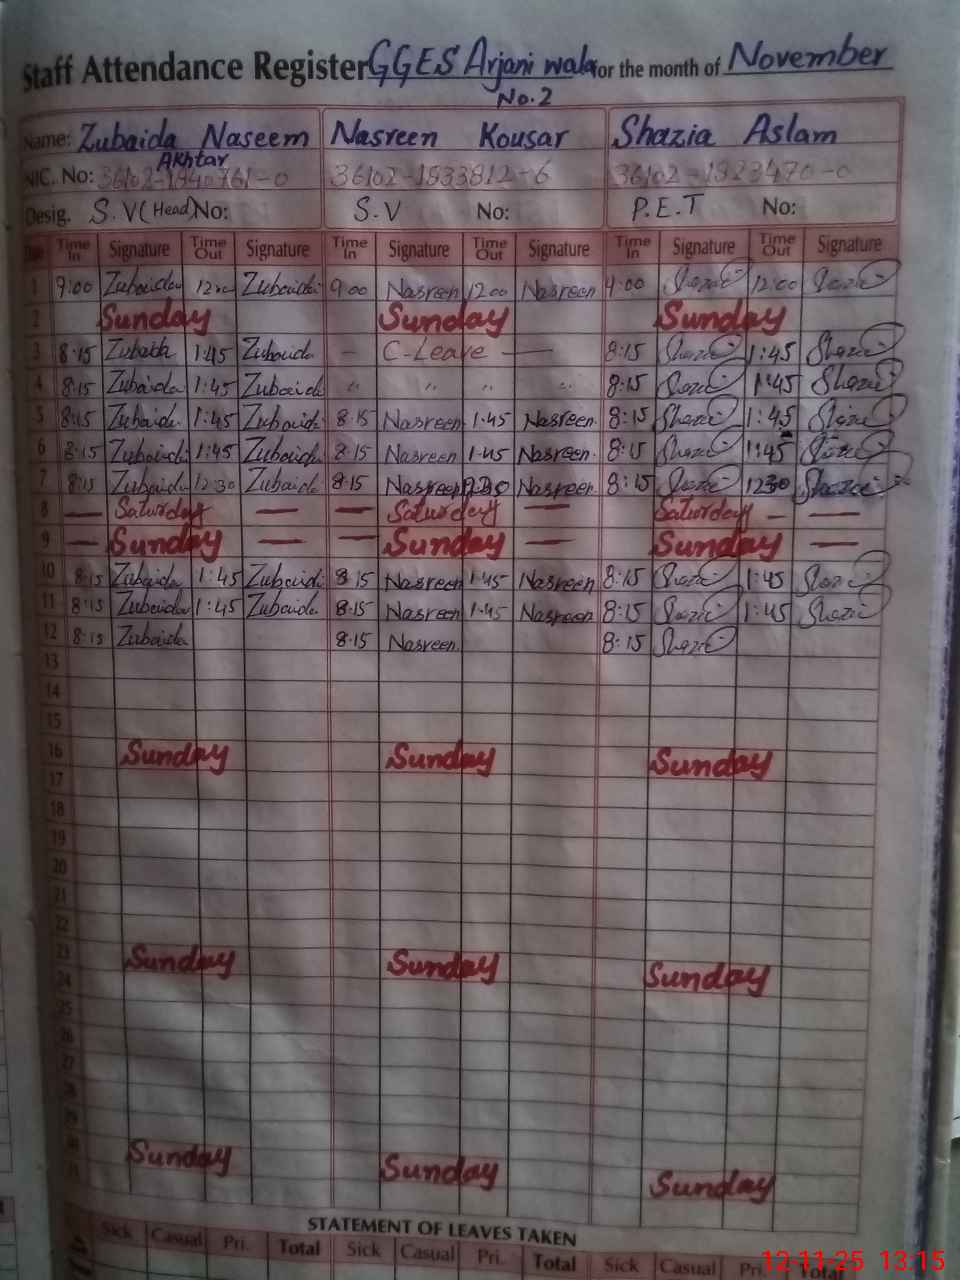 Staff Attendance Register GGES Arjani wala for the month of November
No.2
Name: Zubaida Naseem Nasreen Kousar Shazia Aslam
Akhtar
NIC. No: 36102-1840761-0 36102-1833812-6 36102-1823470-0
Desig. S.V (Head) No: S.V No: P.E.T No:
Time In Signature Time Out Signature Time In Signature Time Out Signature Time In Signature Time Out Signature
1 9:00 Zubaida 12:00 Zubaida 9:00 Nasreen 12:00 Nasreen 9:00 Shazia 12:00 Shazia
2 Sunday Sunday Sunday
3 8:15 Zubaida 1:45 Zubaida — C-Leave — 8:15 Shazia 1:45 Shazia
4 8:15 Zubaida 1:45 Zubaida " " " " 8:15 Shazia 1:45 Shazia
5 8:15 Zubaida 1:45 Zubaida 8:15 Nasreen 1:45 Nasreen 8:15 Shazia 1:45 Shazia
6 8:15 Zubaida 1:45 Zubaida 8:15 Nasreen 1:45 Nasreen. 8:15 Shazia 1:45 Shazia
7 8:15 Zubaida 12:30 Zubaida 8:15 Nasreen 12:30 Nasreen 8:15 Shazia 1230 Shazia
8 — Saturday — — Saturday — Saturday — —
9 — Sunday — — Sunday — Sunday —
10 8:15 Zubaida 1:45 Zubaida 8:15 Nasreen 1:45 Nasreen 8:15 Shazia 1:45 Shazia
11 8:15 Zubaida 1:45 Zubaida 8:15 Nasreen 1:45 Nasreen 8:15 Shazia 1:45 Shazia
12 8:15 Zubaida 8:15 Nasreen. 8:15 Shazia
13
14
15
16 Sunday Sunday Sunday
17
18
19
20
21
22
23 Sunday Sunday Sunday
24
25
26
27
28
29
30 Sunday Sunday Sunday
31
STATEMENT OF LEAVES TAKEN
Sick Casual Pri. Total Sick Casual Pri. Total Sick Casual Pri. Total
12-11-25 13:15